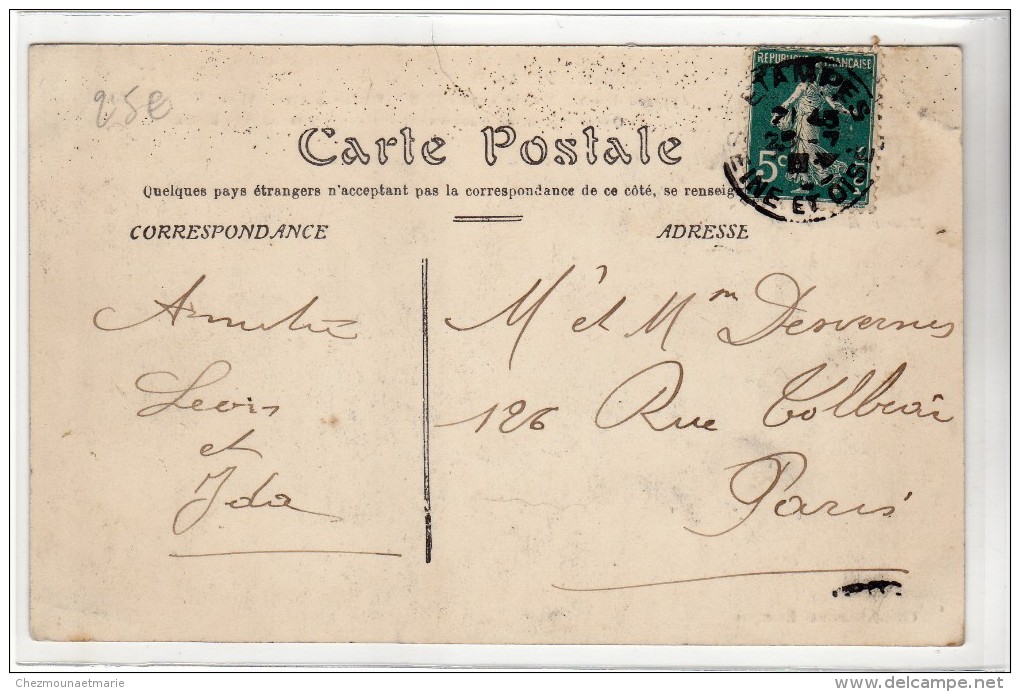 25€
RÉPUBLIQUE FRANÇAISE
5c
ÉTAMPES
SEINE ET OISE
Carte Postale
Quelques pays étrangers n'acceptant pas la correspondance de ce côté, se renseig
CORRESPONDANCE
ADRESSE
Amitié
Louis
et
Ida
Mr et Mm Desvernes
126 Rue Tolbiac
Paris
Chezmounaetmarie
www.delcampe.net